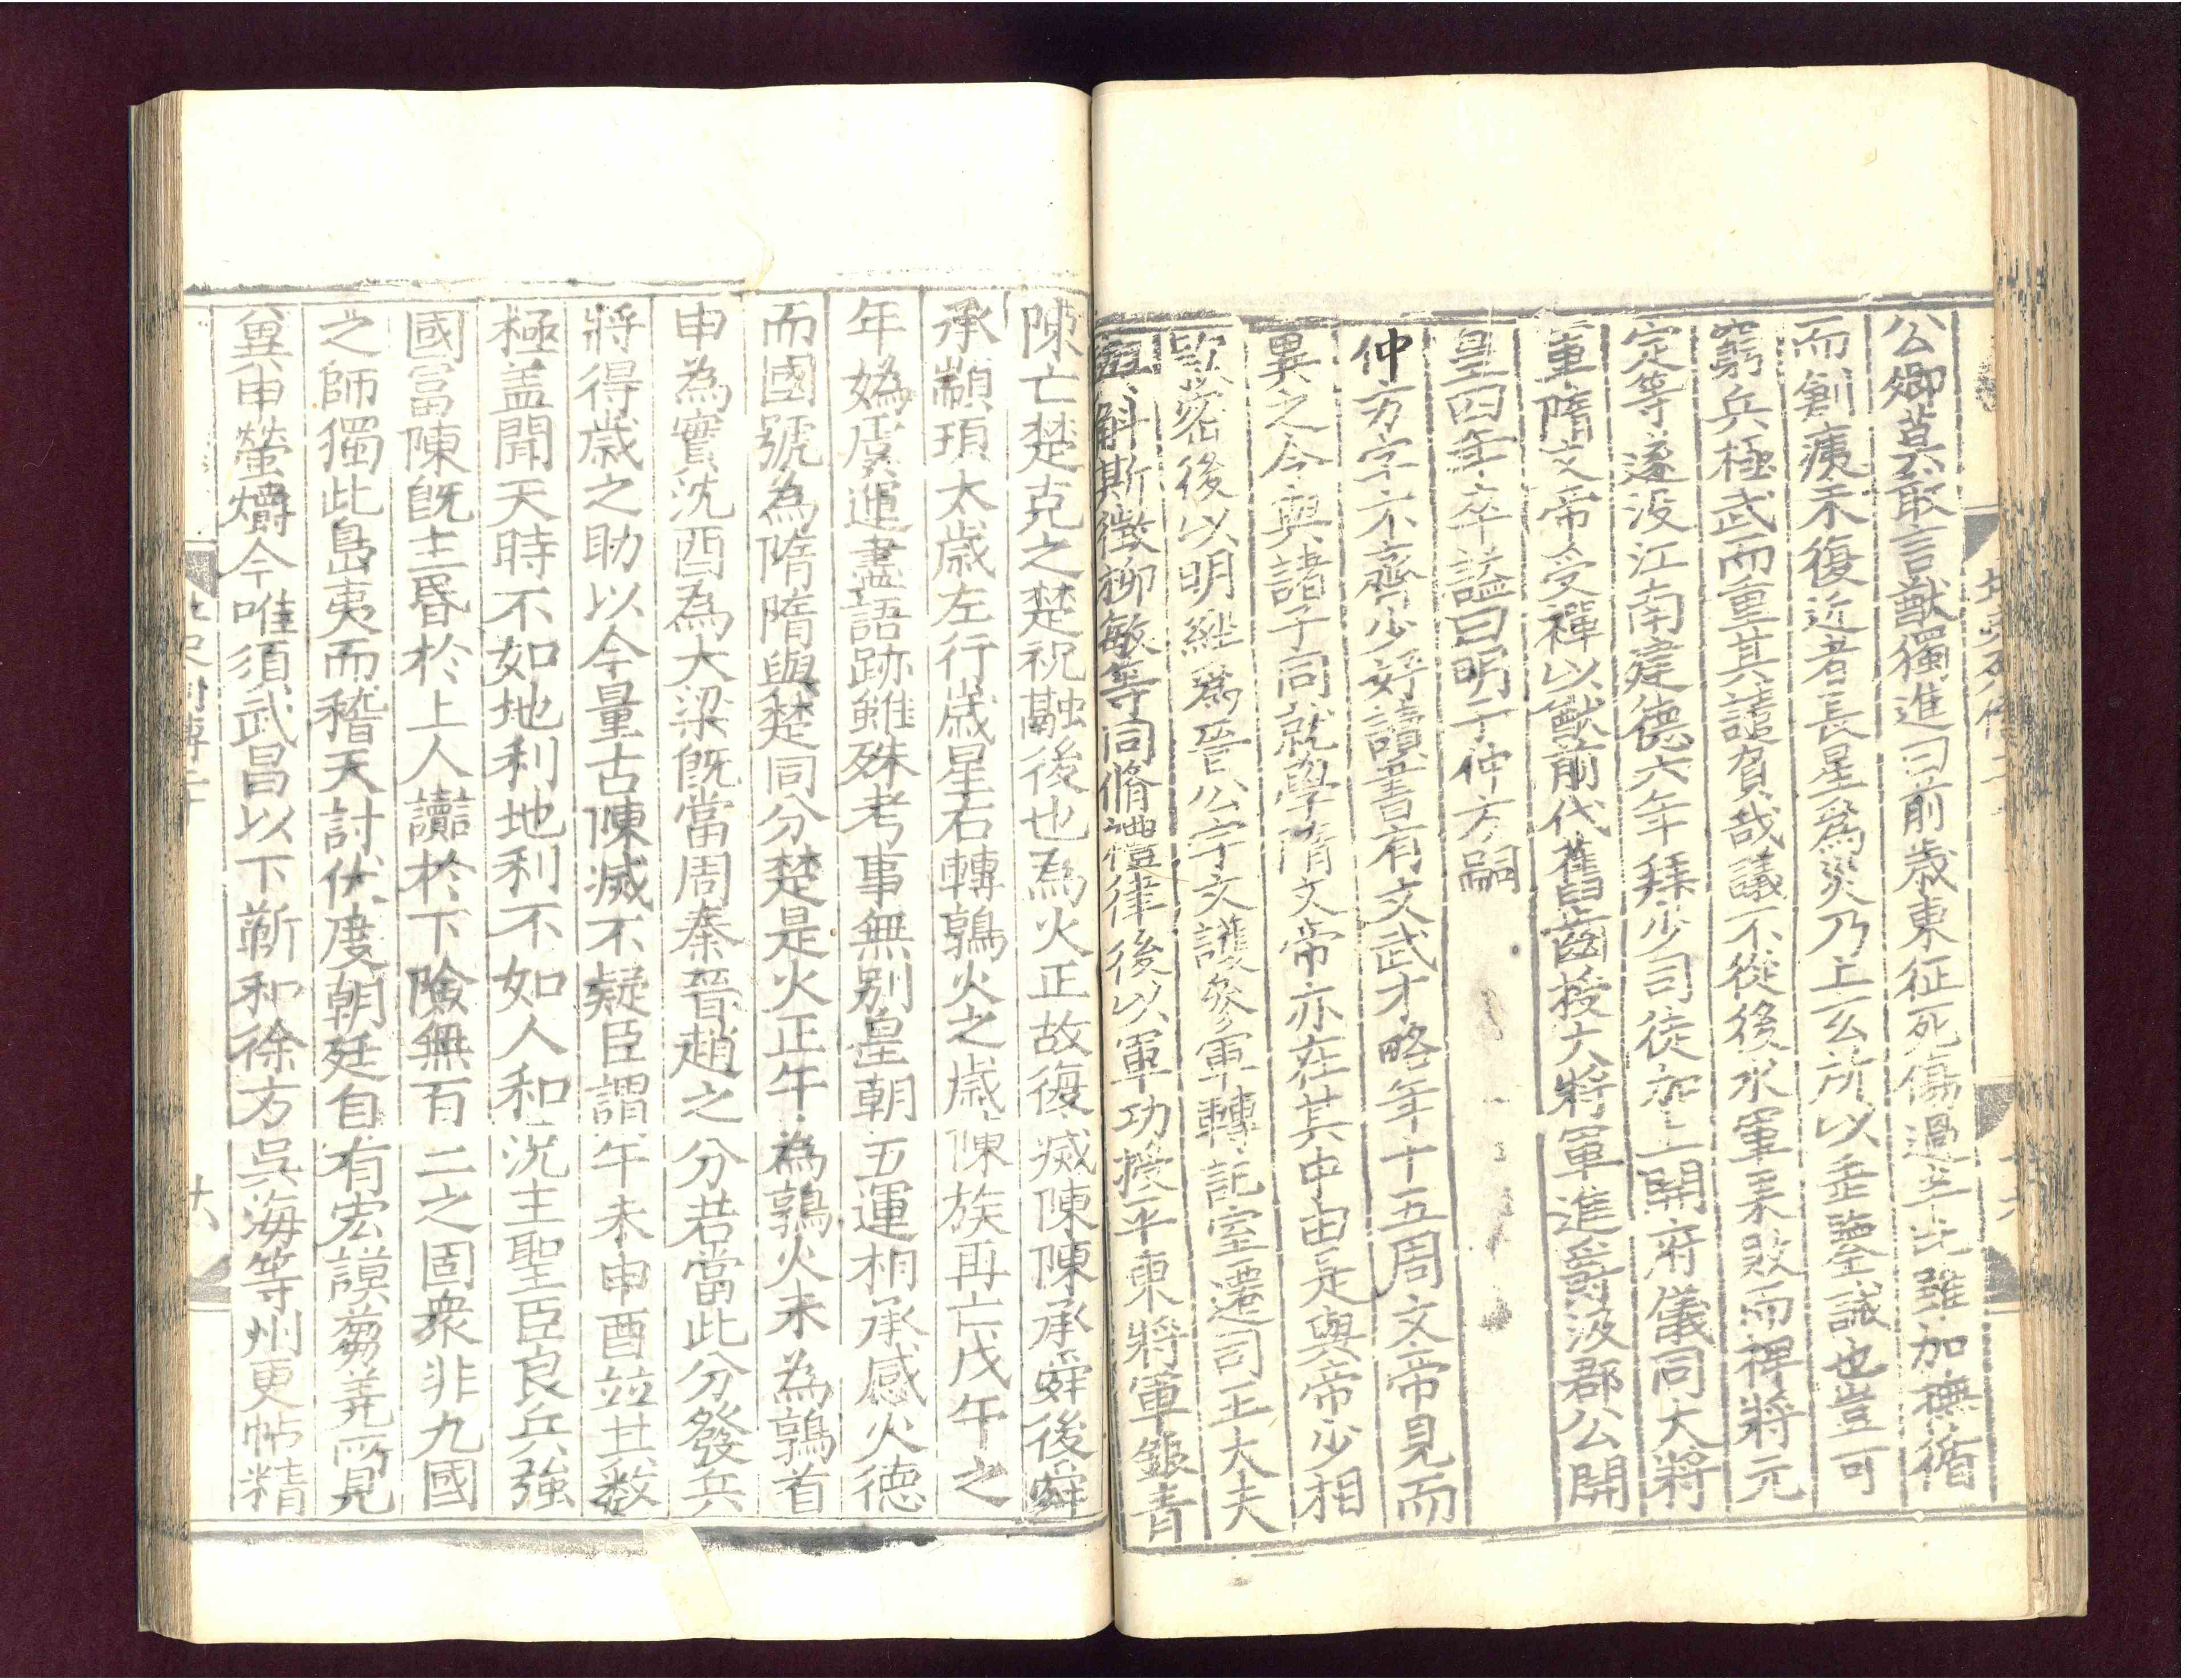 公卿莫敢言猷獨進曰前歲東征死傷過半比雖加撫循
而創痍未復近者長星爲災乃上玄所以垂鑒誡也豈可
窮兵極武而重其譴負哉議不從後水軍果敗而裨將元
定等遂没江南建德六年拜少司徒加上開府儀同大將
軍隋文帝受禪以猷前代舊齒授大將軍進爵汲郡公開
皇四年卒謚曰明子仲方嗣
仲方字不齊少好讀書有文武才略年十五周文帝見而
異之令與諸子同就學隋文帝亦在其中由是與帝少相
欵密後以明經爲晉公宇文護參軍轉記室遷司玉大夫
與斛斯徵柳敏等同脩禮律後以軍功授平東將軍銀青
陳亡楚克之楚祝融後也為火正故復滅陳陳承舜後舜
承顓頊太歲左行歲星右轉鶉火之歲陳族再亡戊午之
年媯虞運盡語跡雖殊考事無别皇朝五運相承感火德
而國號為隋隋與楚同分楚是火正午為鶉火未為鶉首
申為實沈酉為大梁既當周秦晉趙之分若當此分發兵
將得歲之助以今量古陳滅不疑臣謂午未申酉並其数
極盖聞天時不如地利地利不如人和况主聖臣良兵強
國富陳既主昏於上人讟於下險無百二之固衆非九國
之師獨此島夷而稽天討伏度朝廷自有宏謨蒭蕘所見
冀申螢爝今唯須武昌以下蘄和徐方吳海等州更帖精
北史列傳二十
十六